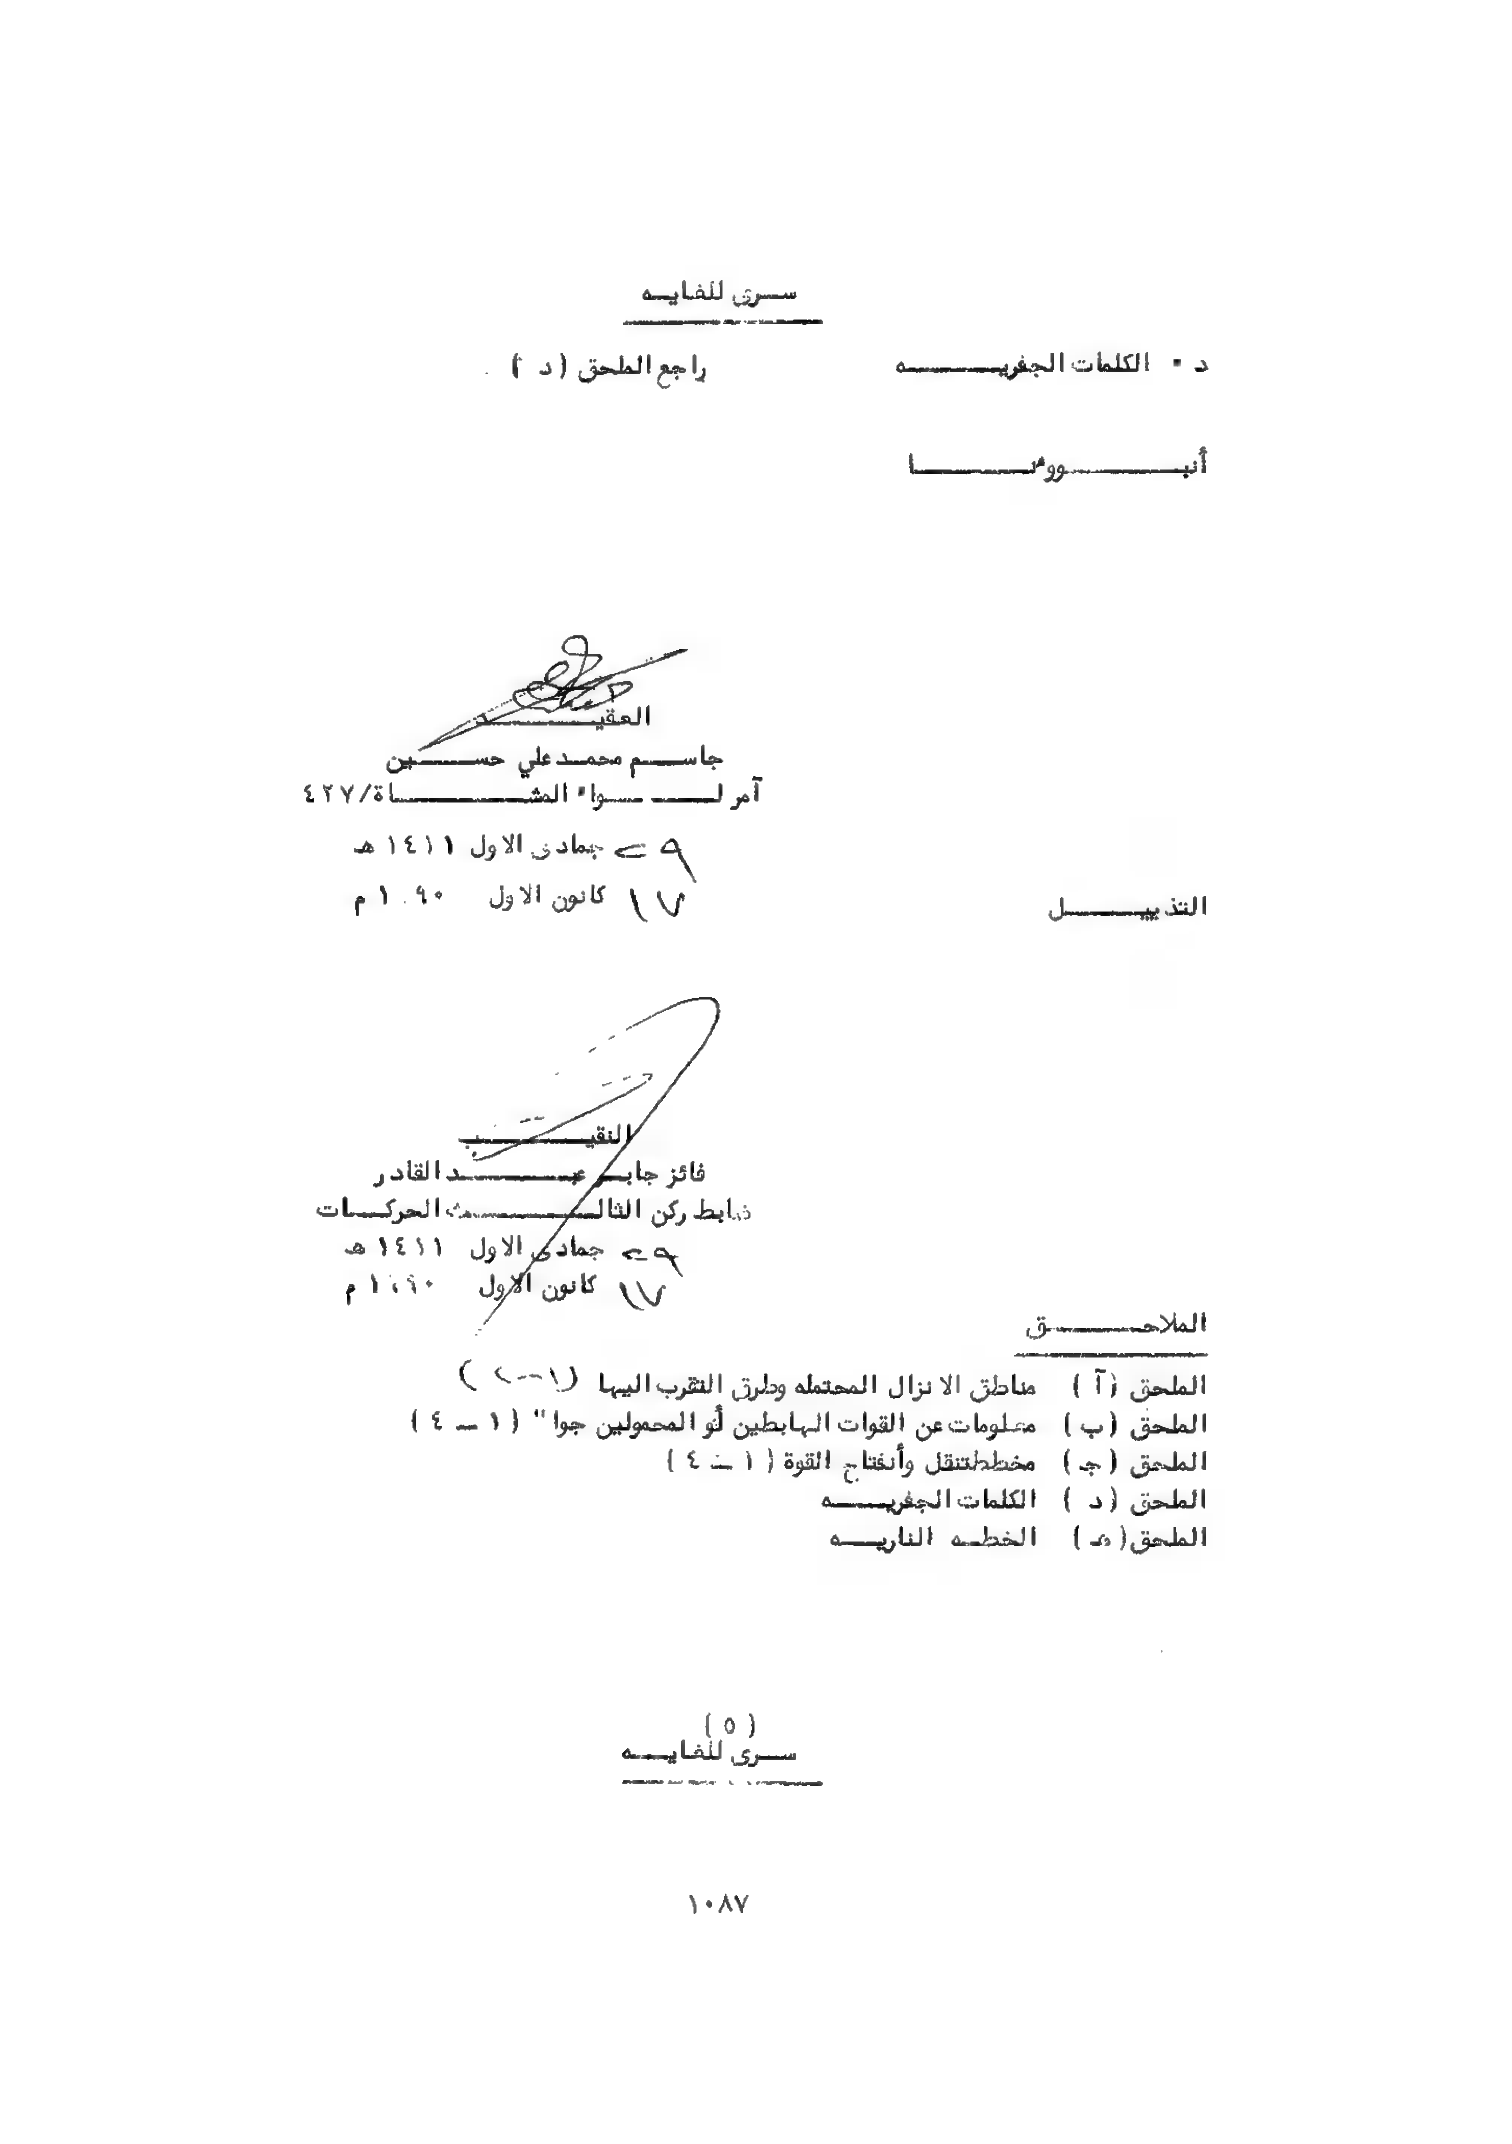 سرى للغايه
د ٠ الكلمات الجفريه راجع الملحق ( د )
أنبوونا
العقيد
جاسم محمد علي حسين
آمر لواء المشاة/٤٢٧
٢٩ جمادى الاول ١٤١١ هـ
١٧ كانون الاول ١٩٩٠ م
التذييل
النقيب
فائز جابر عبد القادر
ضابط ركن الثالث الحركات
٢٩ جمادى الاول ١٤١١ هـ
١٧ كانون الاول ١٩٩٠ م
الملاحق
الملحق ( آ ) مناطق الانزال المحتمله وطرق التقرب اليها ( ١ – ٢ )
الملحق ( ب ) معلومات عن القوات الهابطين أو المحمولين جوا" ( ١ – ٤ )
الملحق ( جـ ) مخطط تنقل وأنفتاح القوة ( ١ – ٤ )
الملحق ( د ) الكلمات الجفريه
الملحق ( هـ ) الخطه الناريه
( ٥ )
سرى للغايه
١٠٨٧